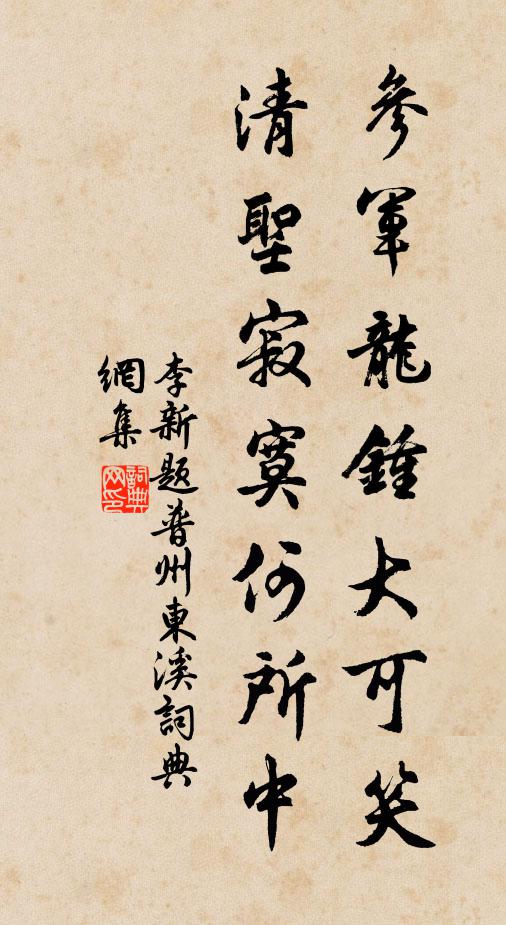 參軍龍鍾大可笑
清聖寂寞何所中
李新題普州東溪詞典
網集
詞典網印